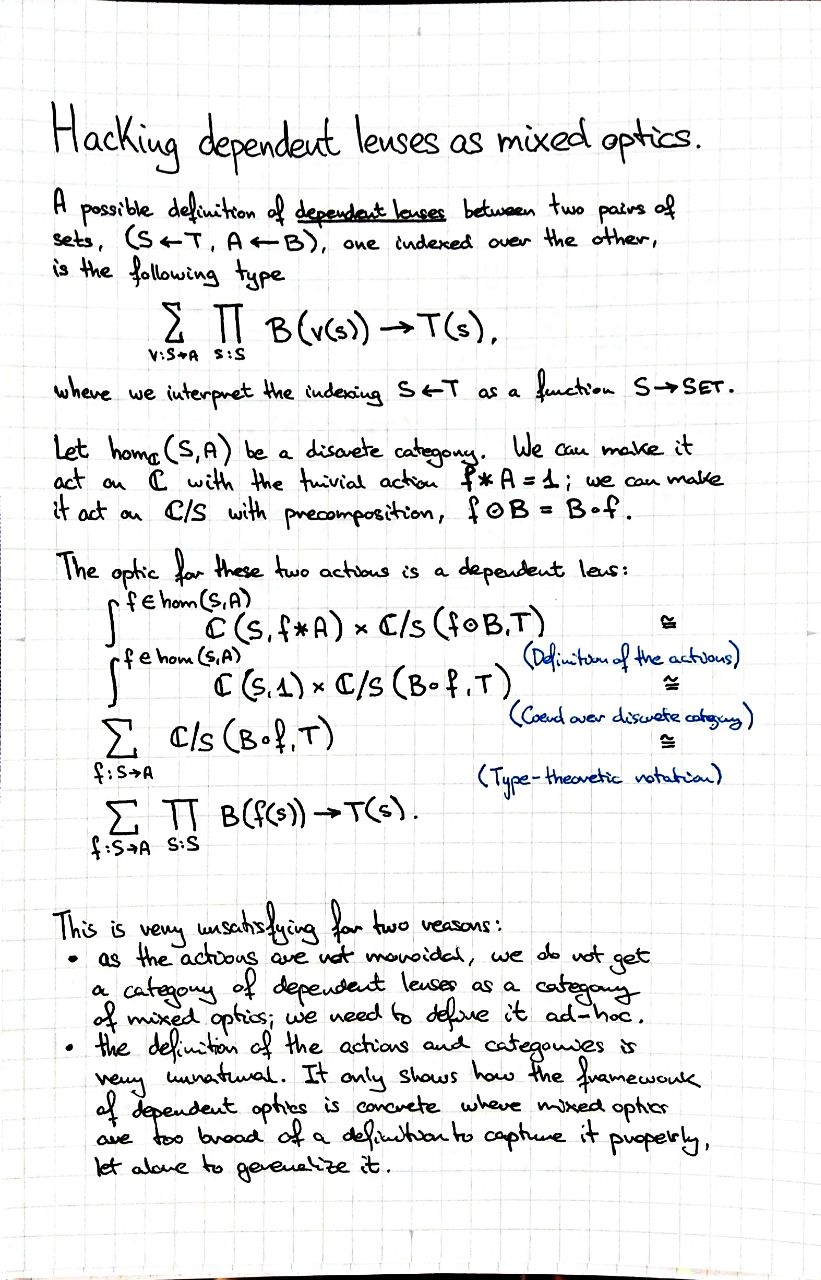 Hacking dependent lenses as mixed optics.
A possible definition of dependent lenses between two pairs of
sets, (S ← T, A ← B), one indexed over the other,
is the following type
∑ ∏ B(v(s)) → T(s),
v:S→A s:S
where we interpret the indexing S ← T as a function S → SET.
Let homℂ(S,A) be a discrete category. We can make it
act on ℂ with the trivial action f * A = 1; we can make
it act on ℂ/S with precomposition, f ⊙ B = B∘f.
The optic for these two actions is a dependent lens:
∫^{f ∈ hom(S,A)} ℂ(S, f*A) × ℂ/S(f⊙B, T) ≅
(Definition of the actions)
∫^{f ∈ hom(S,A)} ℂ(S,1) × ℂ/S(B∘f, T) ≅
(Coend over discrete category)
∑ ℂ/S(B∘f, T) ≅
f:S→A
(Type-theoretic notation)
∑ ∏ B(f(s)) → T(s).
f:S→A s:S
This is very unsatisfying for two reasons:
• as the actions are not monoidal, we do not get
a category of dependent lenses as a category
of mixed optics; we need to define it ad-hoc.
• the definition of the actions and categories is
very unnatural. It only shows how the framework
of dependent optics is concrete where mixed optics
are too broad of a definition to capture it properly,
let alone to generalize it.